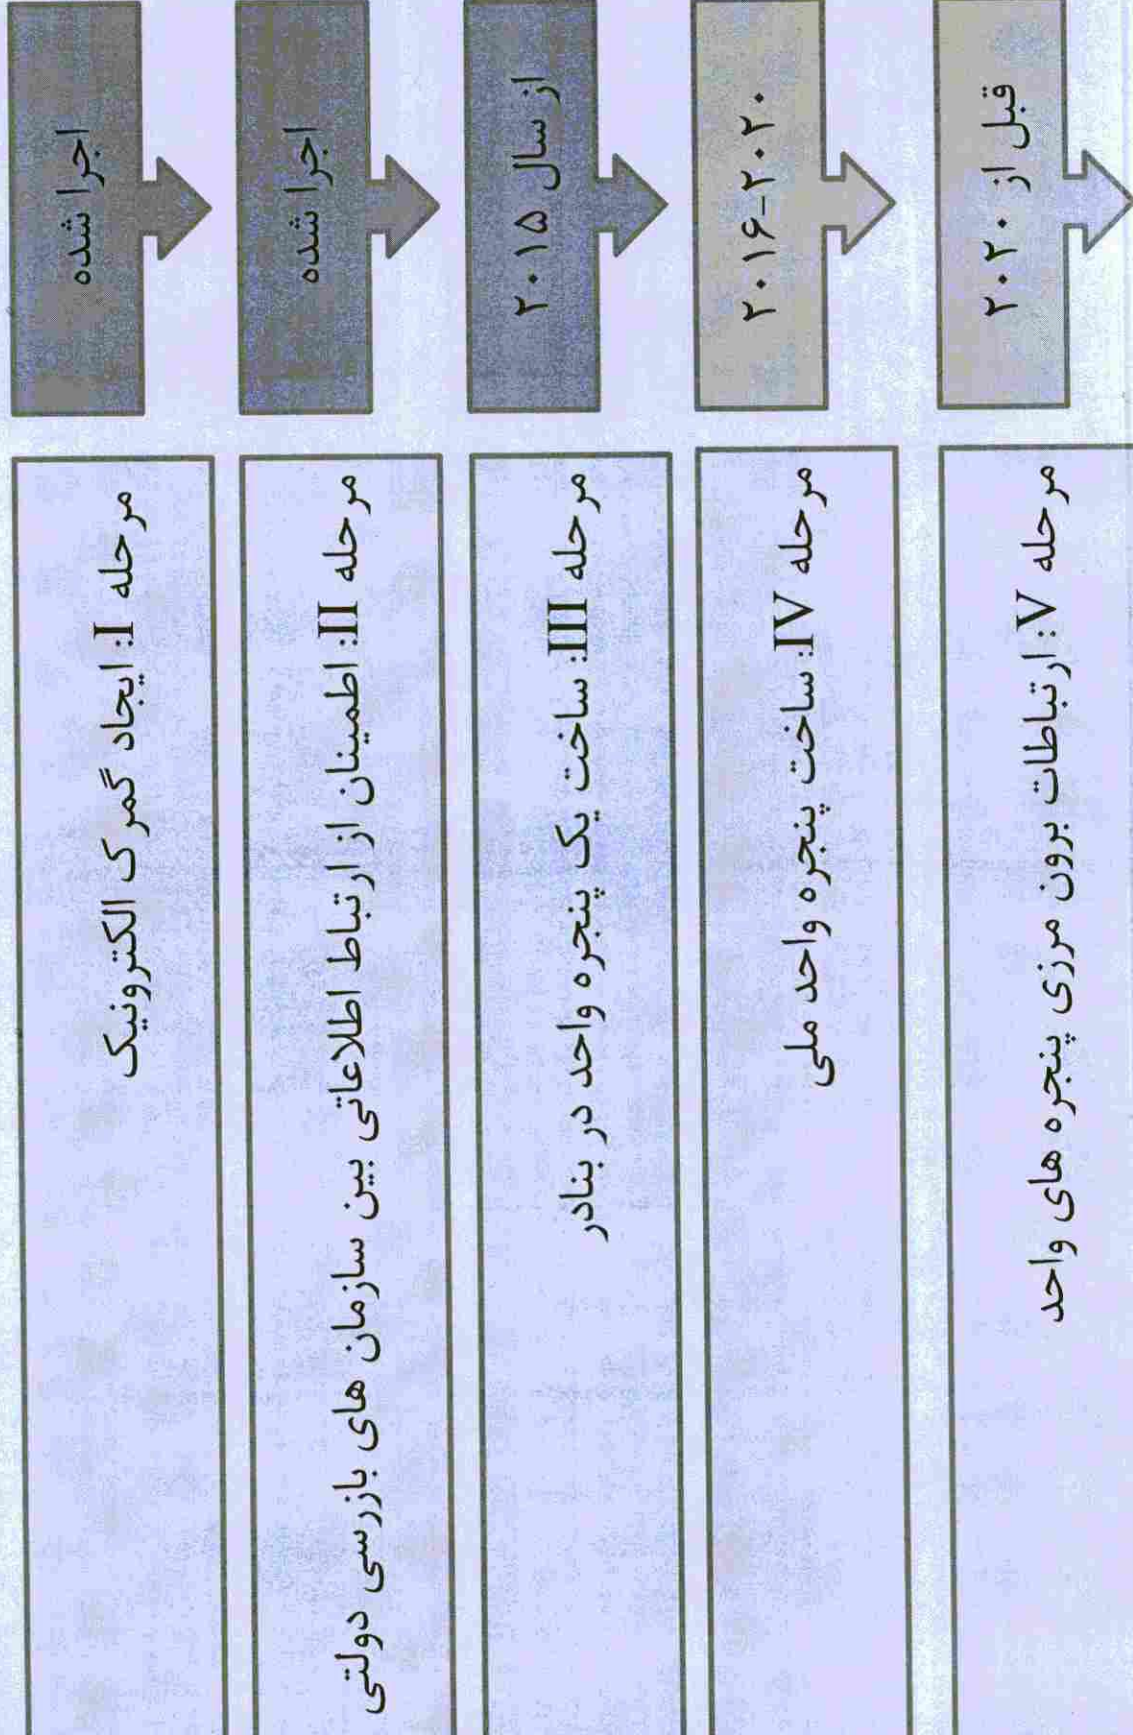 اجرا شده
مرحله I: ایجاد گمرک الکترونیک
اجرا شده
مرحله II: اطمینان از ارتباط اطلاعاتی بین سازمان های بازرسی دولتی
از سال ۲۰۱۵
مرحله III: ساخت یک پنجره واحد در بنادر
۲۰۱۶-۲۰۲۰
مرحله IV: ساخت پنجره واحد ملی
قبل از ۲۰۲۰
مرحله V: ارتباطات برون مرزی پنجره های واحد